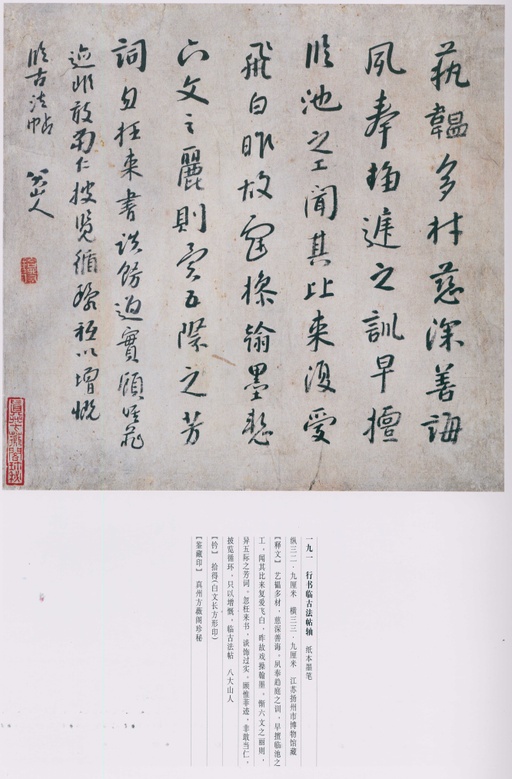 藝韞多材慈深善誨
夙奉趨庭之訓早擅
臨池之工聞其比來復愛
飛白昨故戲操翰墨慙
六文之麗則異五際之芳
詞忽枉來書談飾過實顧惟菲
迹非敢當仁披覽循環祇以增慨
臨古法帖 八大山人
一九一 行书临古法帖轴 纸本墨笔
纵三二·九厘米 横三三·九厘米 江苏扬州市博物馆藏
【释文】艺韫多材，慈深善诲。夙奉趋庭之训，早擅临池之
工，闻其比来复爱飞白，昨故戏操翰墨。惭六文之丽则，
异五际之芳词，忽枉来书，谈饰过实，顾惟菲迹，非敢当仁，
披览循环，只以增慨，临古法帖 八大山人
【钤】 拾得(白文长方形印)
【鉴藏印】 真州方 阁珍秘